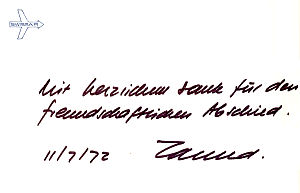 SWISSAIR
Mit herzlichem Dank für den
freundschaftlichen Abschied.
11/7/72